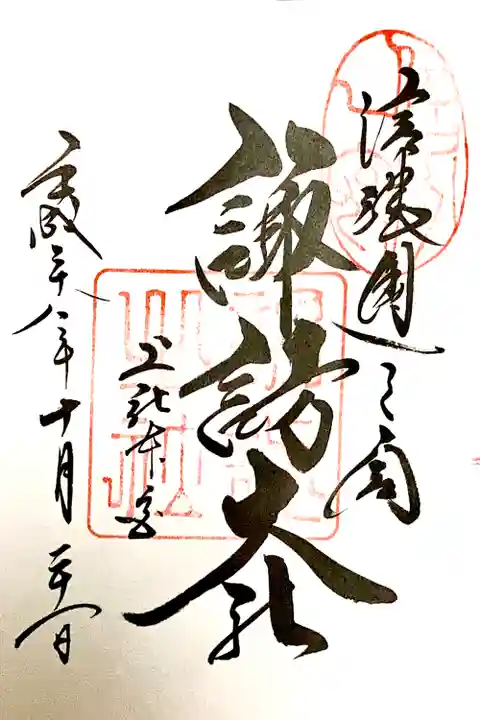 信濃國一之宮
諏訪大社
上社本宮
平成二十八年十月二十日